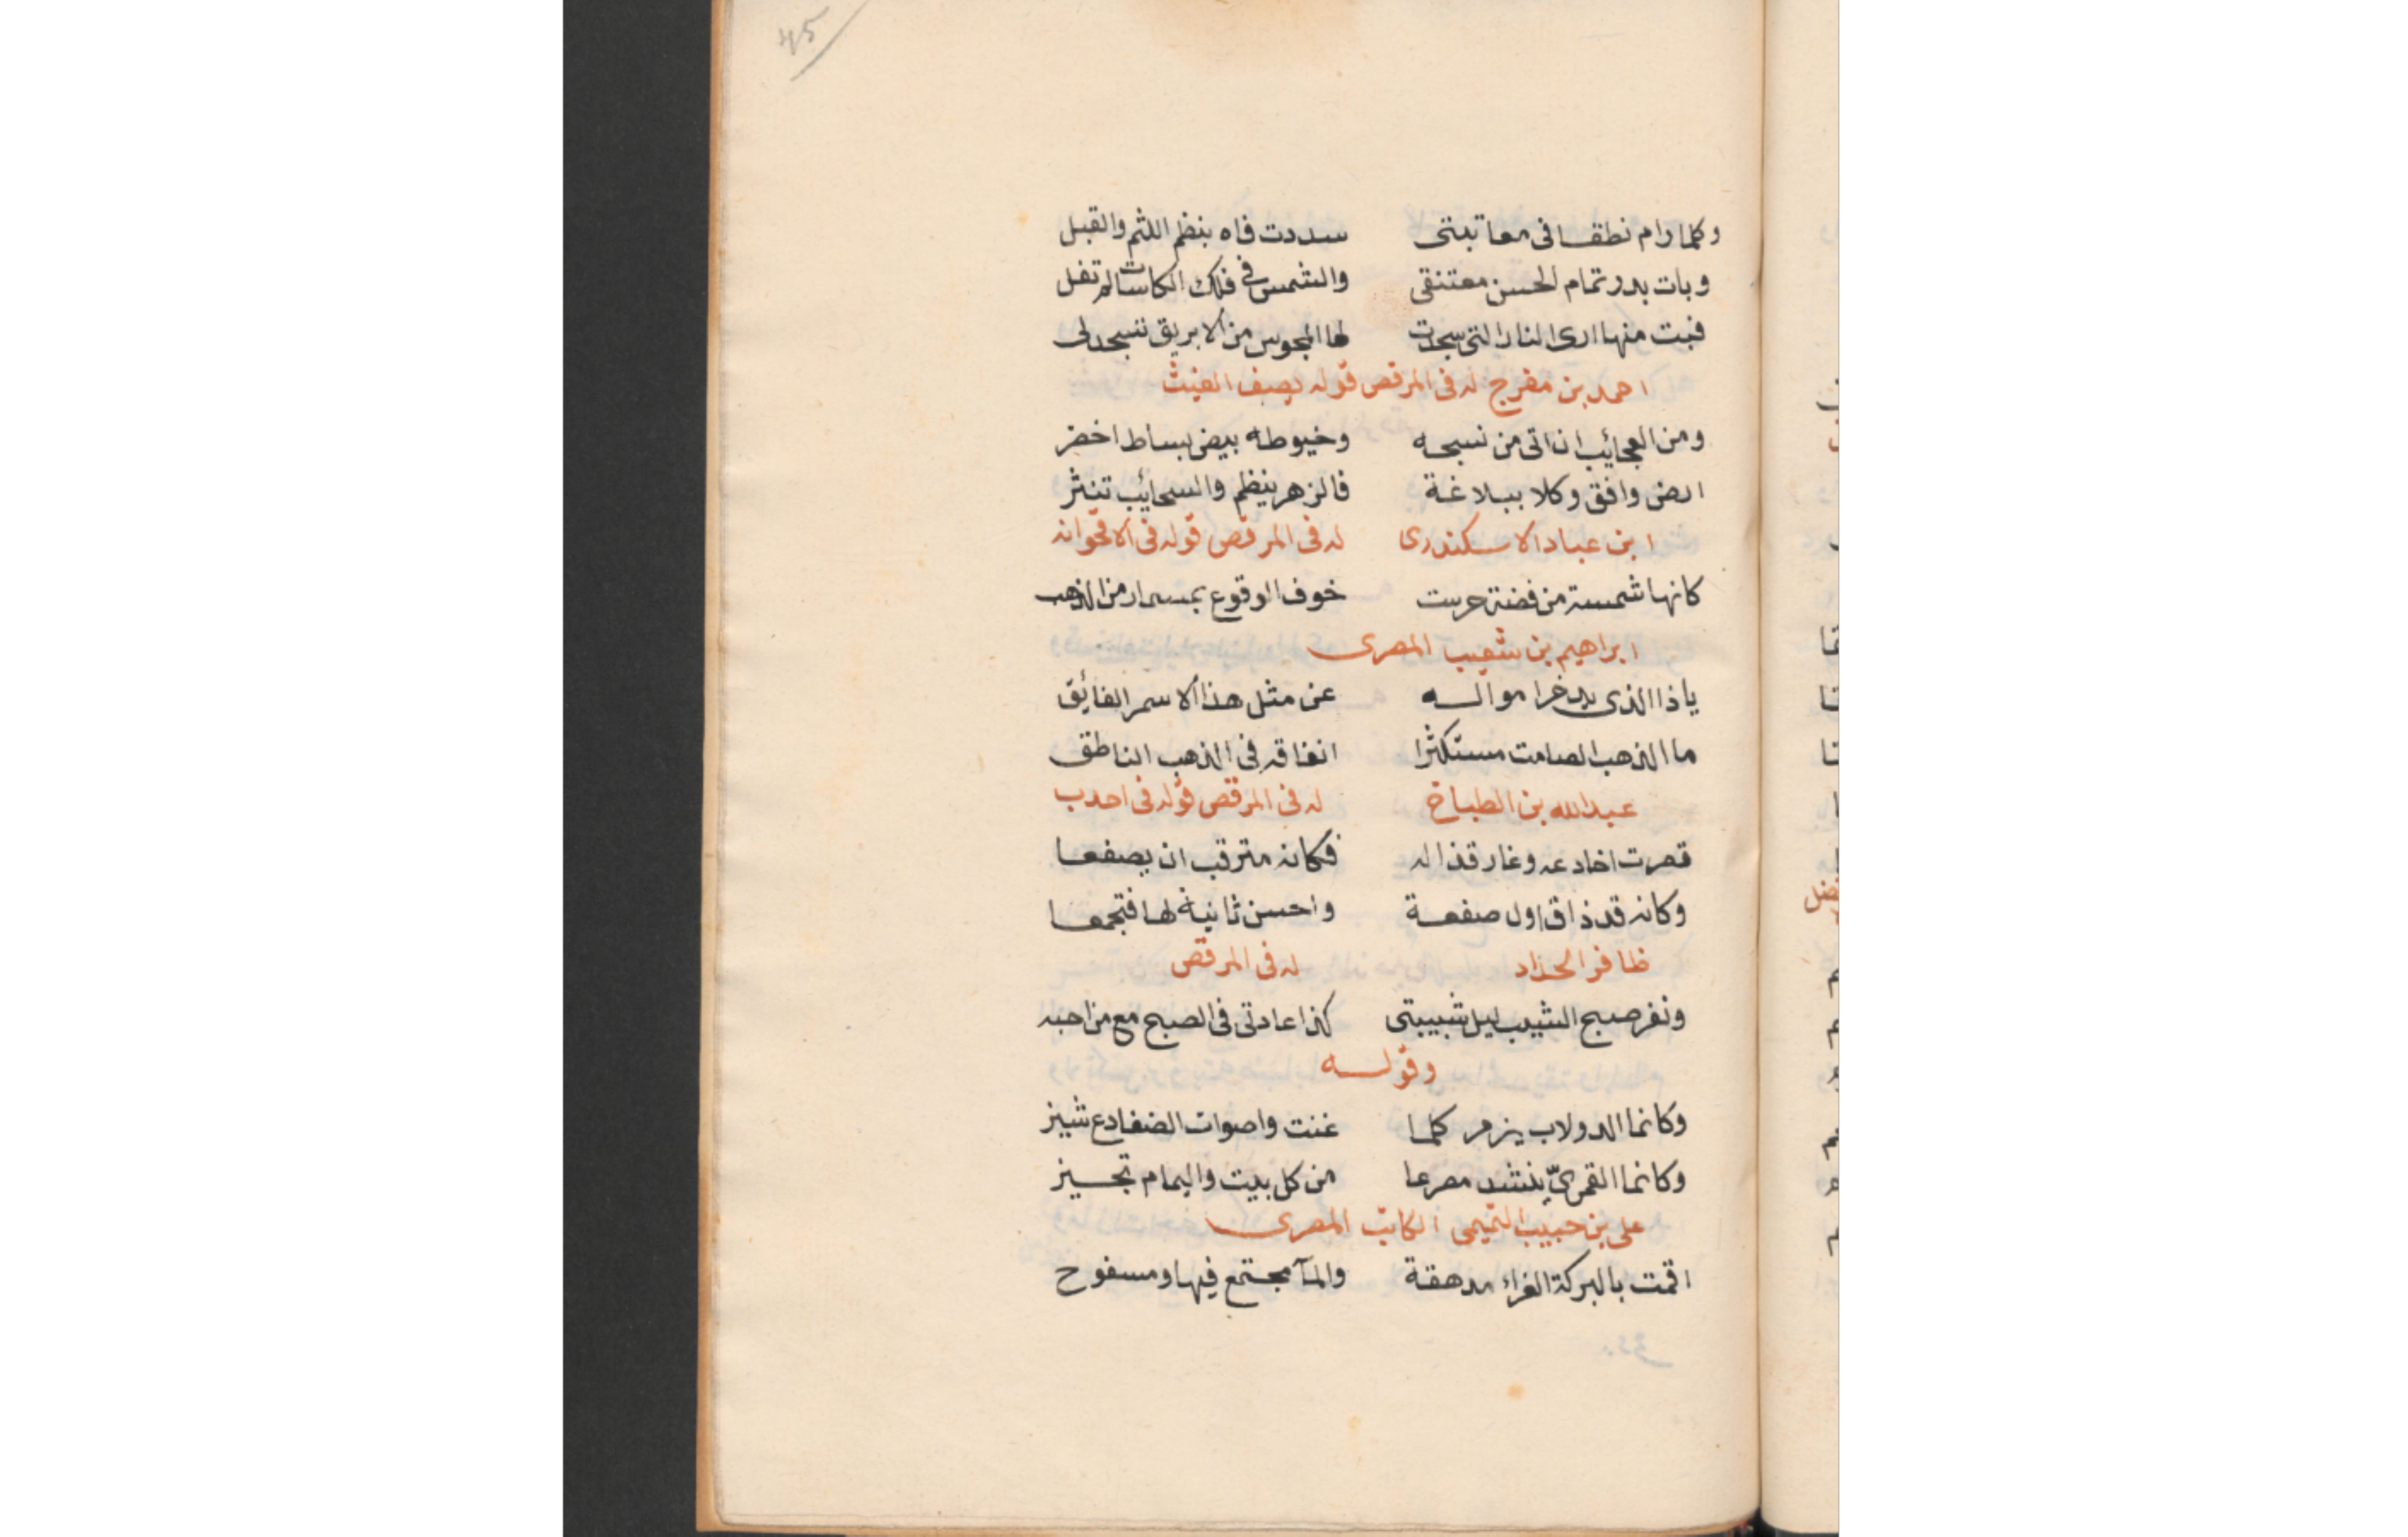 45
وكلما رام نطقا فى معاتبتى سددت فاه بنظم اللثم والقبل
وبات بدر تمام الحسن معتنقى والشمس فى فلك الكاسات لم تفل
فبت منها ارى النار التى سجدت لها المجوس من الابريق تسجد لى
احمد بن مفرج له فى المرقص قوله يصف الغيث
ومن العجائب ان اتى من نسجه وخيوطه بيض بساط اخضر
ارض وافق وكلا ببلاغة فالزهر ينظم والسحائب تنثر
ابن عباد الاسكندرى له فى المرقص قوله فى الاقحوانه
كانها شمسة من فضة حرست خوف الوقوع بمسمار من الذهب
ابراهيم بن شعيب المصرى
ياذا الذى يدخر امواله عن مثل هذا الاسمر الفائق
ما الذهب الصامت مستكثرا انفاقه فى الذهب الناطق
عبد الله بن الطباخ له فى المرقص قوله فى احدب
قصرت اخادعه وغار قذاله فكانه مترقب ان يصفعا
وكانه قد ذاق اول صفعة واحسن ثانية لها فتجمعا
ظافر الحداد له فى المرقص
ونفر صبح الشيب ليل شبيبتى كذا عادتى فى الصبح مع من احبه
وقوله
وكانما الدولاب يزمر كلما غنت واصوات الضفادع شيز
وكانما القمرىّ ينشد مصرعا من كل بيت واليمام تجيز
على بن حبيب التميمى الكاتب المصرى
اقمت بالبركة الغراء مدهقة والمآ مجتمع فيها ومسفوح